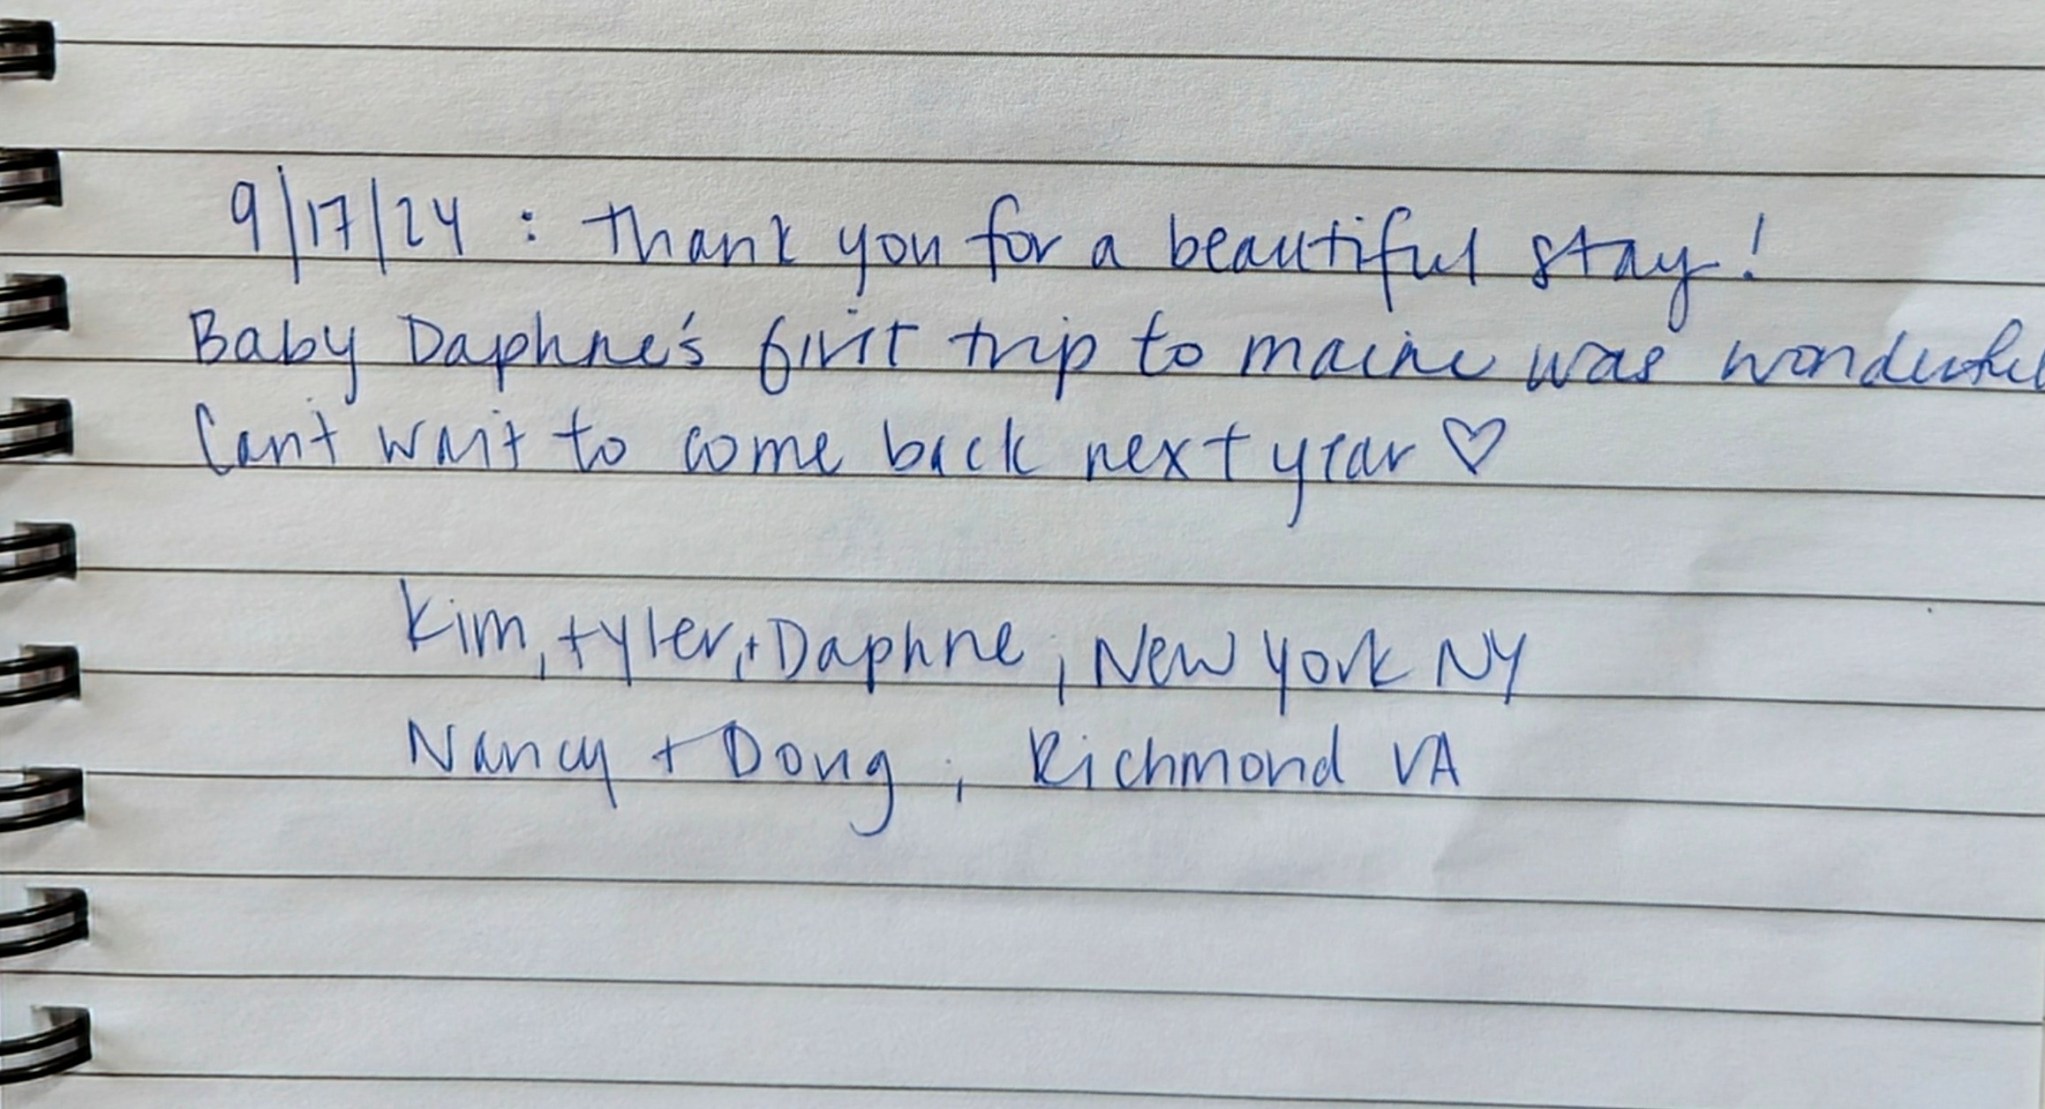 9/17/24 : Thank you for a beautiful stay!
Baby Daphne's first trip to maine was wonderful
Can't wait to come back next year ♡
Kim, Tyler, + Daphne, New York NY
Nancy + Doug, Richmond VA